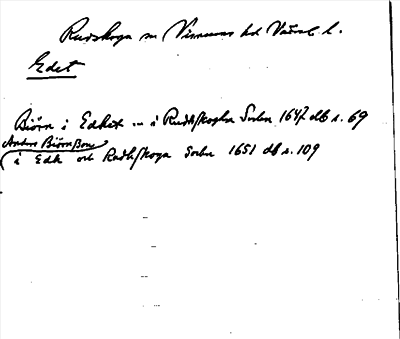 Rudskoga sn Visnums hd Värml l.
Edet
Björn i Edhet — i Rudhskogha Sochn 1647 db s. 69
Anders Björnsson
i Edh och Rudhskoga Sochn 1651 db s. 109